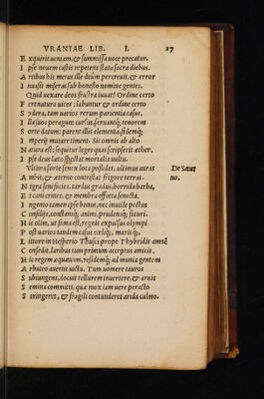 VRANIAE LIB. I. 27
Exquirit ueniam, & summissa uoce precatur.
Ipse nouem castis repetens stata sacra diebus.
Artibus his metus ille deûm percreuit, & error
Inuasit miseras sub honesto nomine gentes.
Quid uexare deos frustra iuuat? Ordine certo
Fert natura uices; labuntur & ordine certo
Sydera, tam uarios rerum parientia casus.
Illa suos peragunt cursus, seruantq; tenorem
Sorte datum: parent illis elementa, fidemq;
Imperij mutare timent. Sic omnis ab alto
Natura est: sequitur leges quas scripserit æther.
Ipse deus lato spectat mortalia uultu.
Vltima sorte senex loca possidet, ultimus aurat De Satur
Ambit, & æterno contristat frigore terras. no.
Nigra seni facies, tardus gradus, horrida barba,
Et cani crines, & membra effœta senecta.
Ingenio tamen ipse bonus, nec inutile pectus
Consilijs, constansq; animi, prudensq; futuri.
Hic olim, ut fama est, regnis expulsus olympi
Post uarios tandem casus cœliq;, marisq;,
Littore in Hesperio Thuscī prope Thybridis amnē
Consedit. laribus tum primum acceptus amicis,
Hic regem æquæuum, residemq; ad munia gentem
Arbuteo auertit uictu. Tum uomere tauros
Subiungens, docuit tellurem inuertere, & arui
Semina committi, quæ mox iam uere peracto
Stringeret, & fragili contunderet arida culmo.